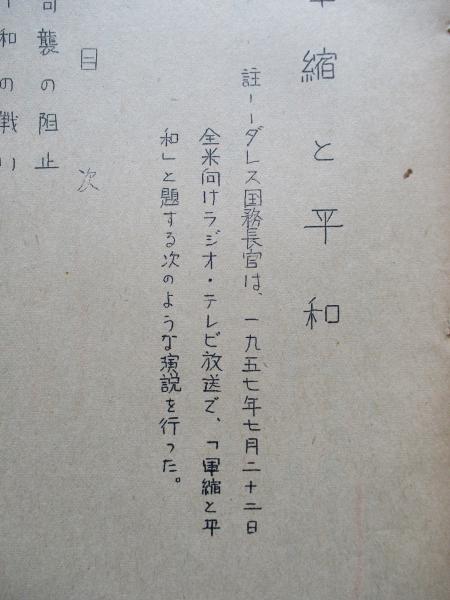 軍縮と平和
註ーーダレス国務長官は、一九五七年七月二十二日
全米向けラジオ・テレビ放送で、「軍縮と平
和」と題する次のような演説を行った。
目次
奇襲の阻止
平和の戦い